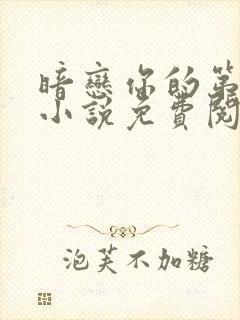 暗戀你的第
小說免費閱
泡芙不加糖